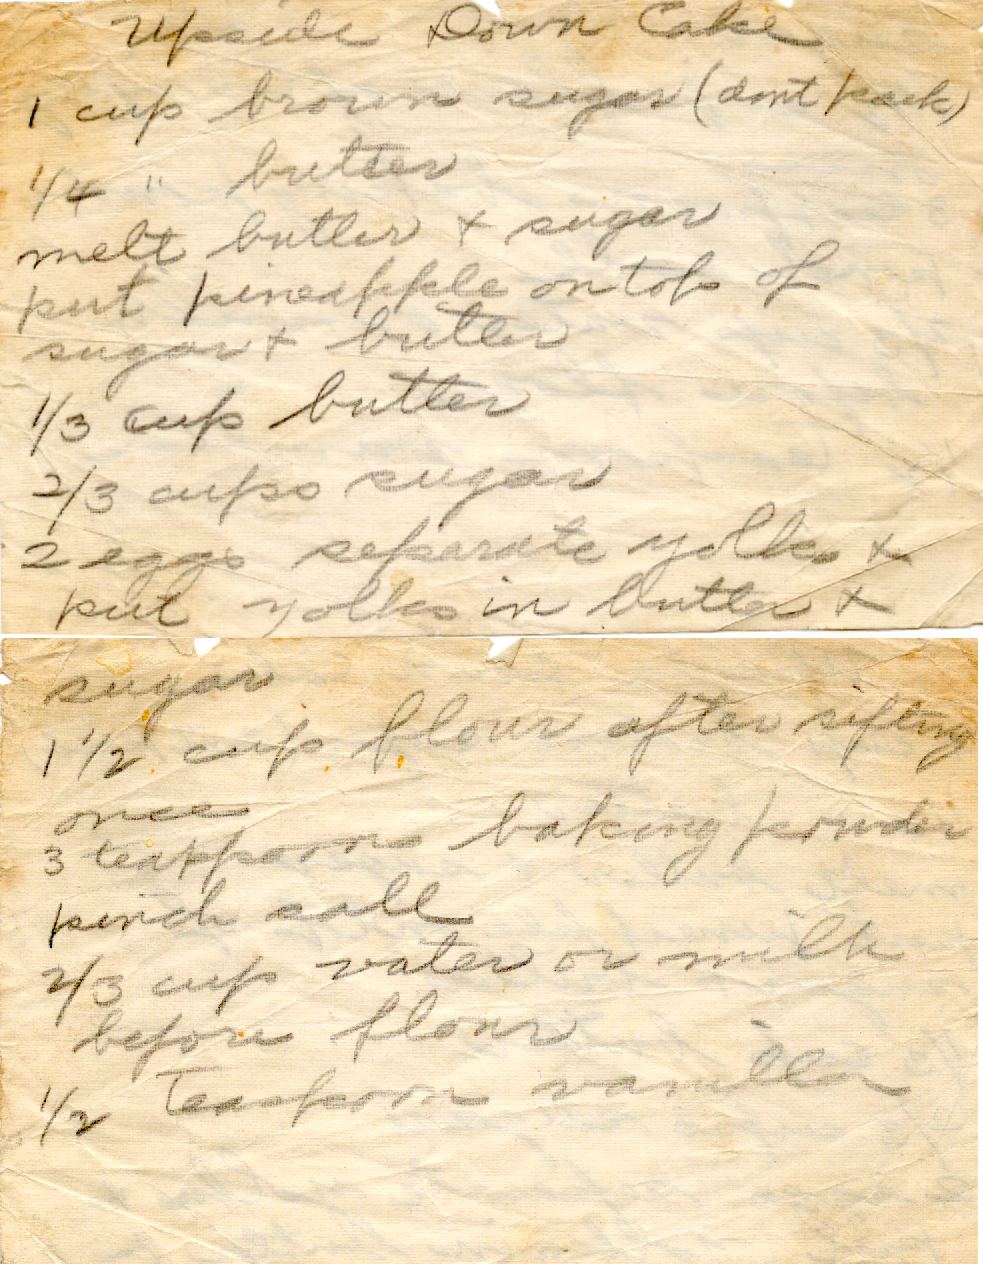 Upside Down Cake
1 cup brown sugar (dont pack)
1/4 " butter
melt butter + sugar
put pineapple on top of
sugar + butter
1/3 cup butter
2/3 cups sugar
2 eggs separate yolks +
put yolks in butter +
sugar
1 1/2 cup flour after sifting
once
3 teaspoons baking powder
pinch salt
2/3 cup water or milk
before flour
1/2 Teaspoon vanilla